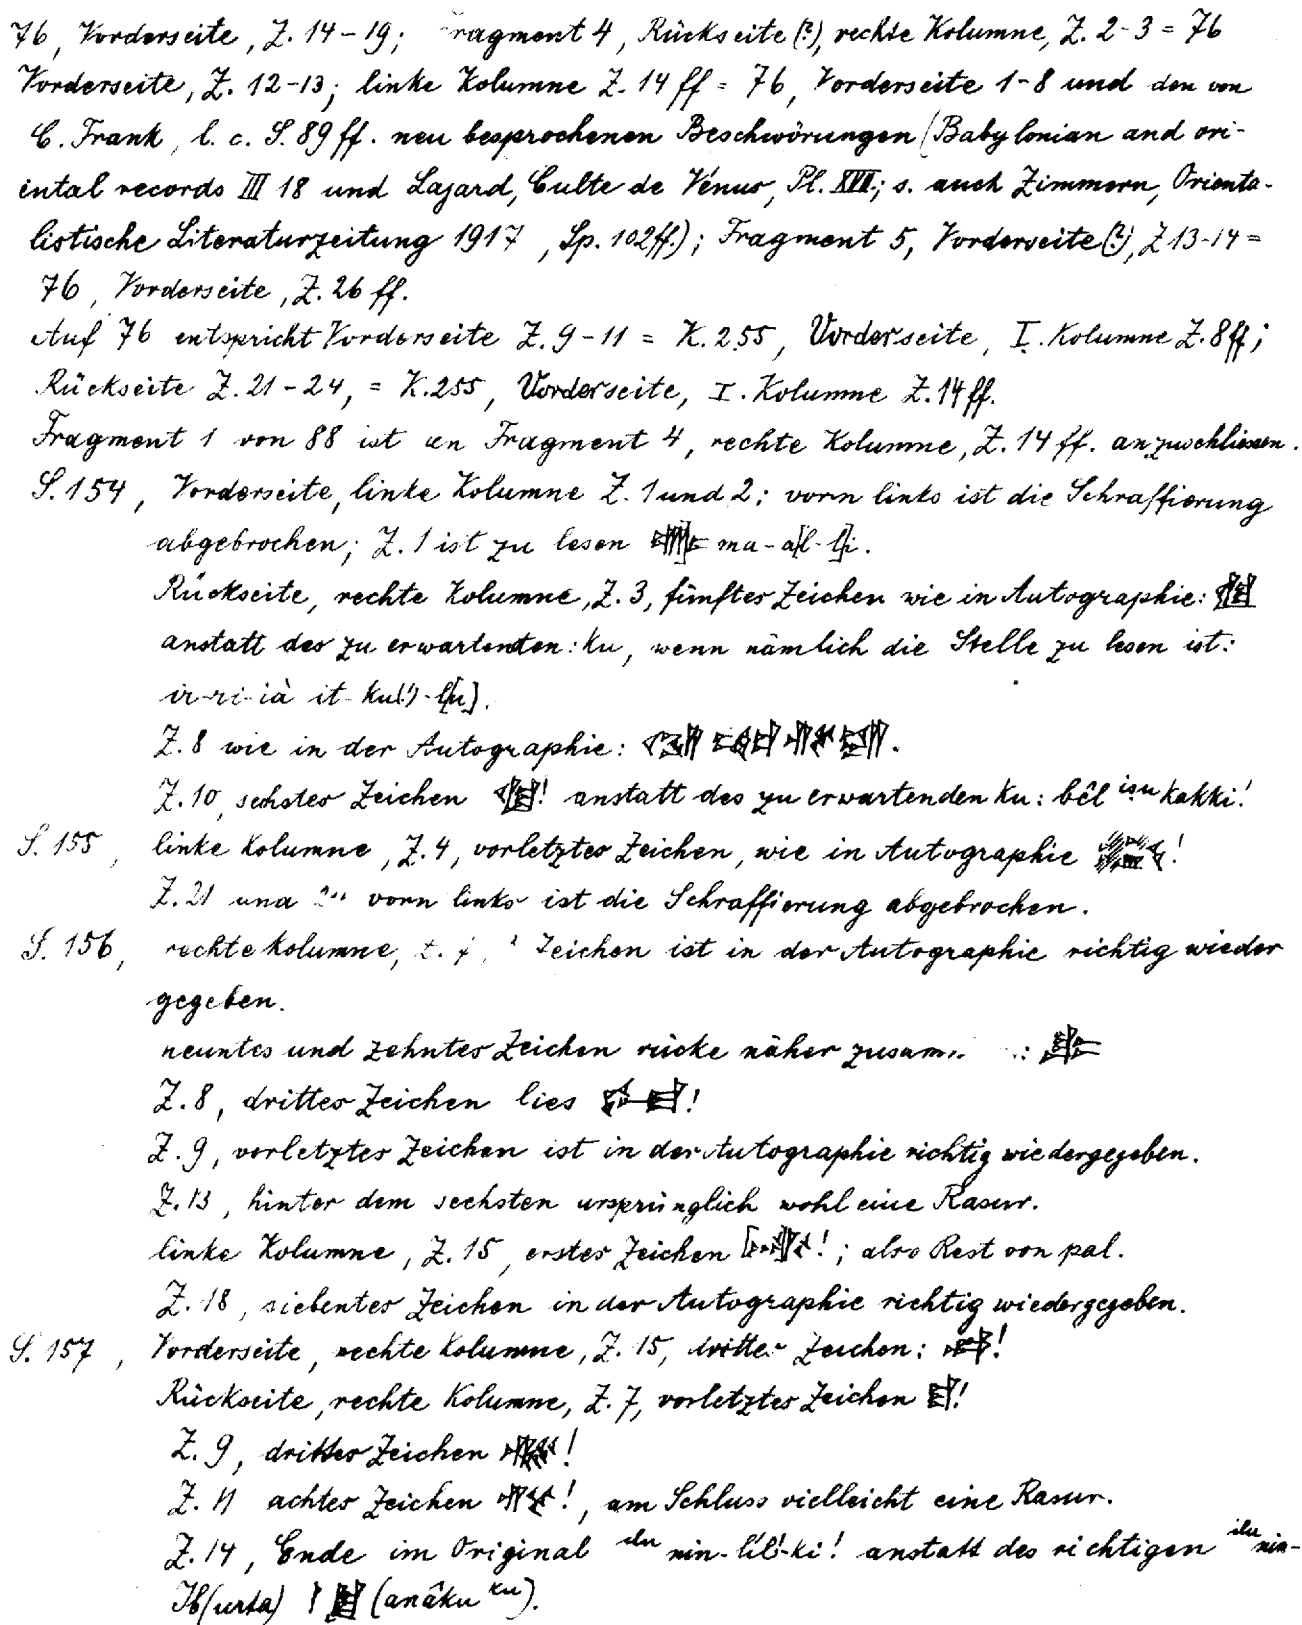 76, Vorderseite, Z. 14-19; ragment 4, Rückseite (?), rechte Kolumne, Z. 2-3 = 76
Vorderseite, Z. 12-13; linke Kolumne Z. 14 ff = 76, Vorderseite 1-8 und den von
C. Frank, l. c. S. 89 ff. neu besprochenen Beschwörungen (Babylonian and ori-
ental records III 18 und Lajard, Culte de Vénus, Pl. XVII; s. auch Zimmern, Orienta-
listische Literaturzeitung 1917, Sp. 102 ff.); Fragment 5, Vorderseite (?), Z 13-14 =
76, Vorderseite, Z. 26 ff.
Auf 76 entspricht Vorderseite Z. 9-11 = K. 255, Vorderseite, I. Kolumne Z. 8 ff;
Rückseite Z. 21-24, = K. 255, Vorderseite, I. Kolumne Z. 14 ff.
Fragment 1 von 88 ist an Fragment 4, rechte Kolumne, Z. 14 ff. anzuschliessen.
S. 154, Vorderseite, linke Kolumne Z. 1 und 2: vorn links ist die Schraffierung
abgebrochen; Z. 1 ist zu lesen ma-a[l-l]i.
Rückseite, rechte Kolumne, Z. 3, fünftes Zeichen wie in Autographie:
anstatt des zu erwartenden: ku, wenn nämlich die Stelle zu lesen ist:
ir-ri-ià it-ku(!)-l[u].
Z. 8 wie in der Autographie:
Z. 10, sechstes Zeichen ! anstatt des zu erwartenden ku: bêl iṣu kakki!
S. 155, linke Kolumne, Z. 4, vorletztes Zeichen, wie in Autographie !
Z. 21 und vorn links ist die Schraffierung abgebrochen.
S. 156, rechte Kolumne, Zeichen ist in der Autographie richtig wieder
gegeben.
neuntes und zehntes Zeichen rücke näher
Z. 8, drittes Zeichen lies !
Z. 9, vorletztes Zeichen ist in der Autographie richtig wiedergegeben.
Z. 13, hinter dem sechsten ursprünglich wohl eine Rasur.
linke Kolumne, Z. 15, erstes Zeichen !; also Rest von pal.
Z. 18, siebentes Zeichen in der Autographie richtig wiedergegeben.
S. 157, Vorderseite, rechte Kolumne, Z. 15, drittes Zeichen: !
Rückseite, rechte Kolumne, Z. 7, vorletztes Zeichen !
Z. 9, drittes Zeichen !
Z. 11 achtes Zeichen !, am Schluss vielleicht eine Rasur.
Z. 14, Ende im Original ilu nin-lil!-ki! anstatt des richtigen ilu nin-
Ib(urta) (anâku ku).